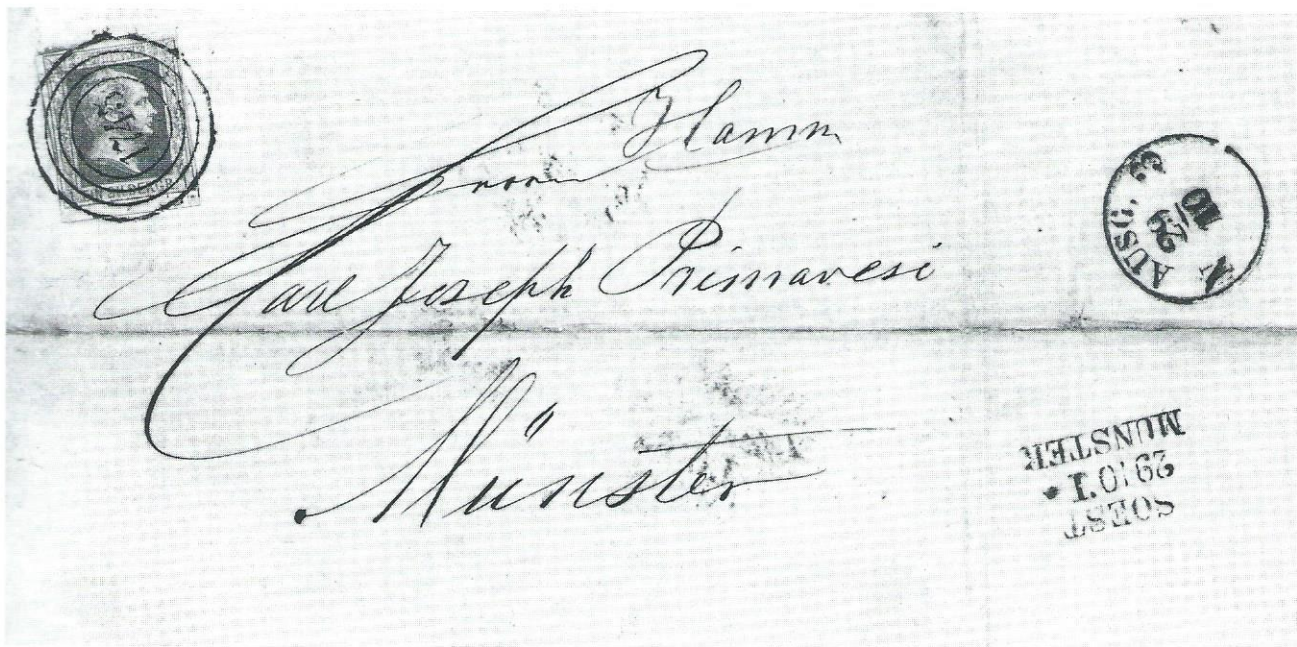 Hamm
Herrn
Carl Joseph Primavesi
Münster
AUSG. 3
29
10
N
SOEST
29 10 I
MUNSTER
SILBERGR